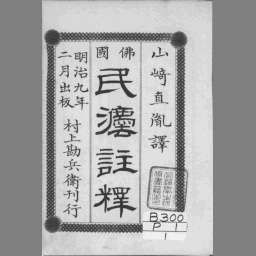 山崎直胤譯
佛國
民灋註釋
明治九年
二月出板
村上勘兵衛刊行
B300
P 1
1